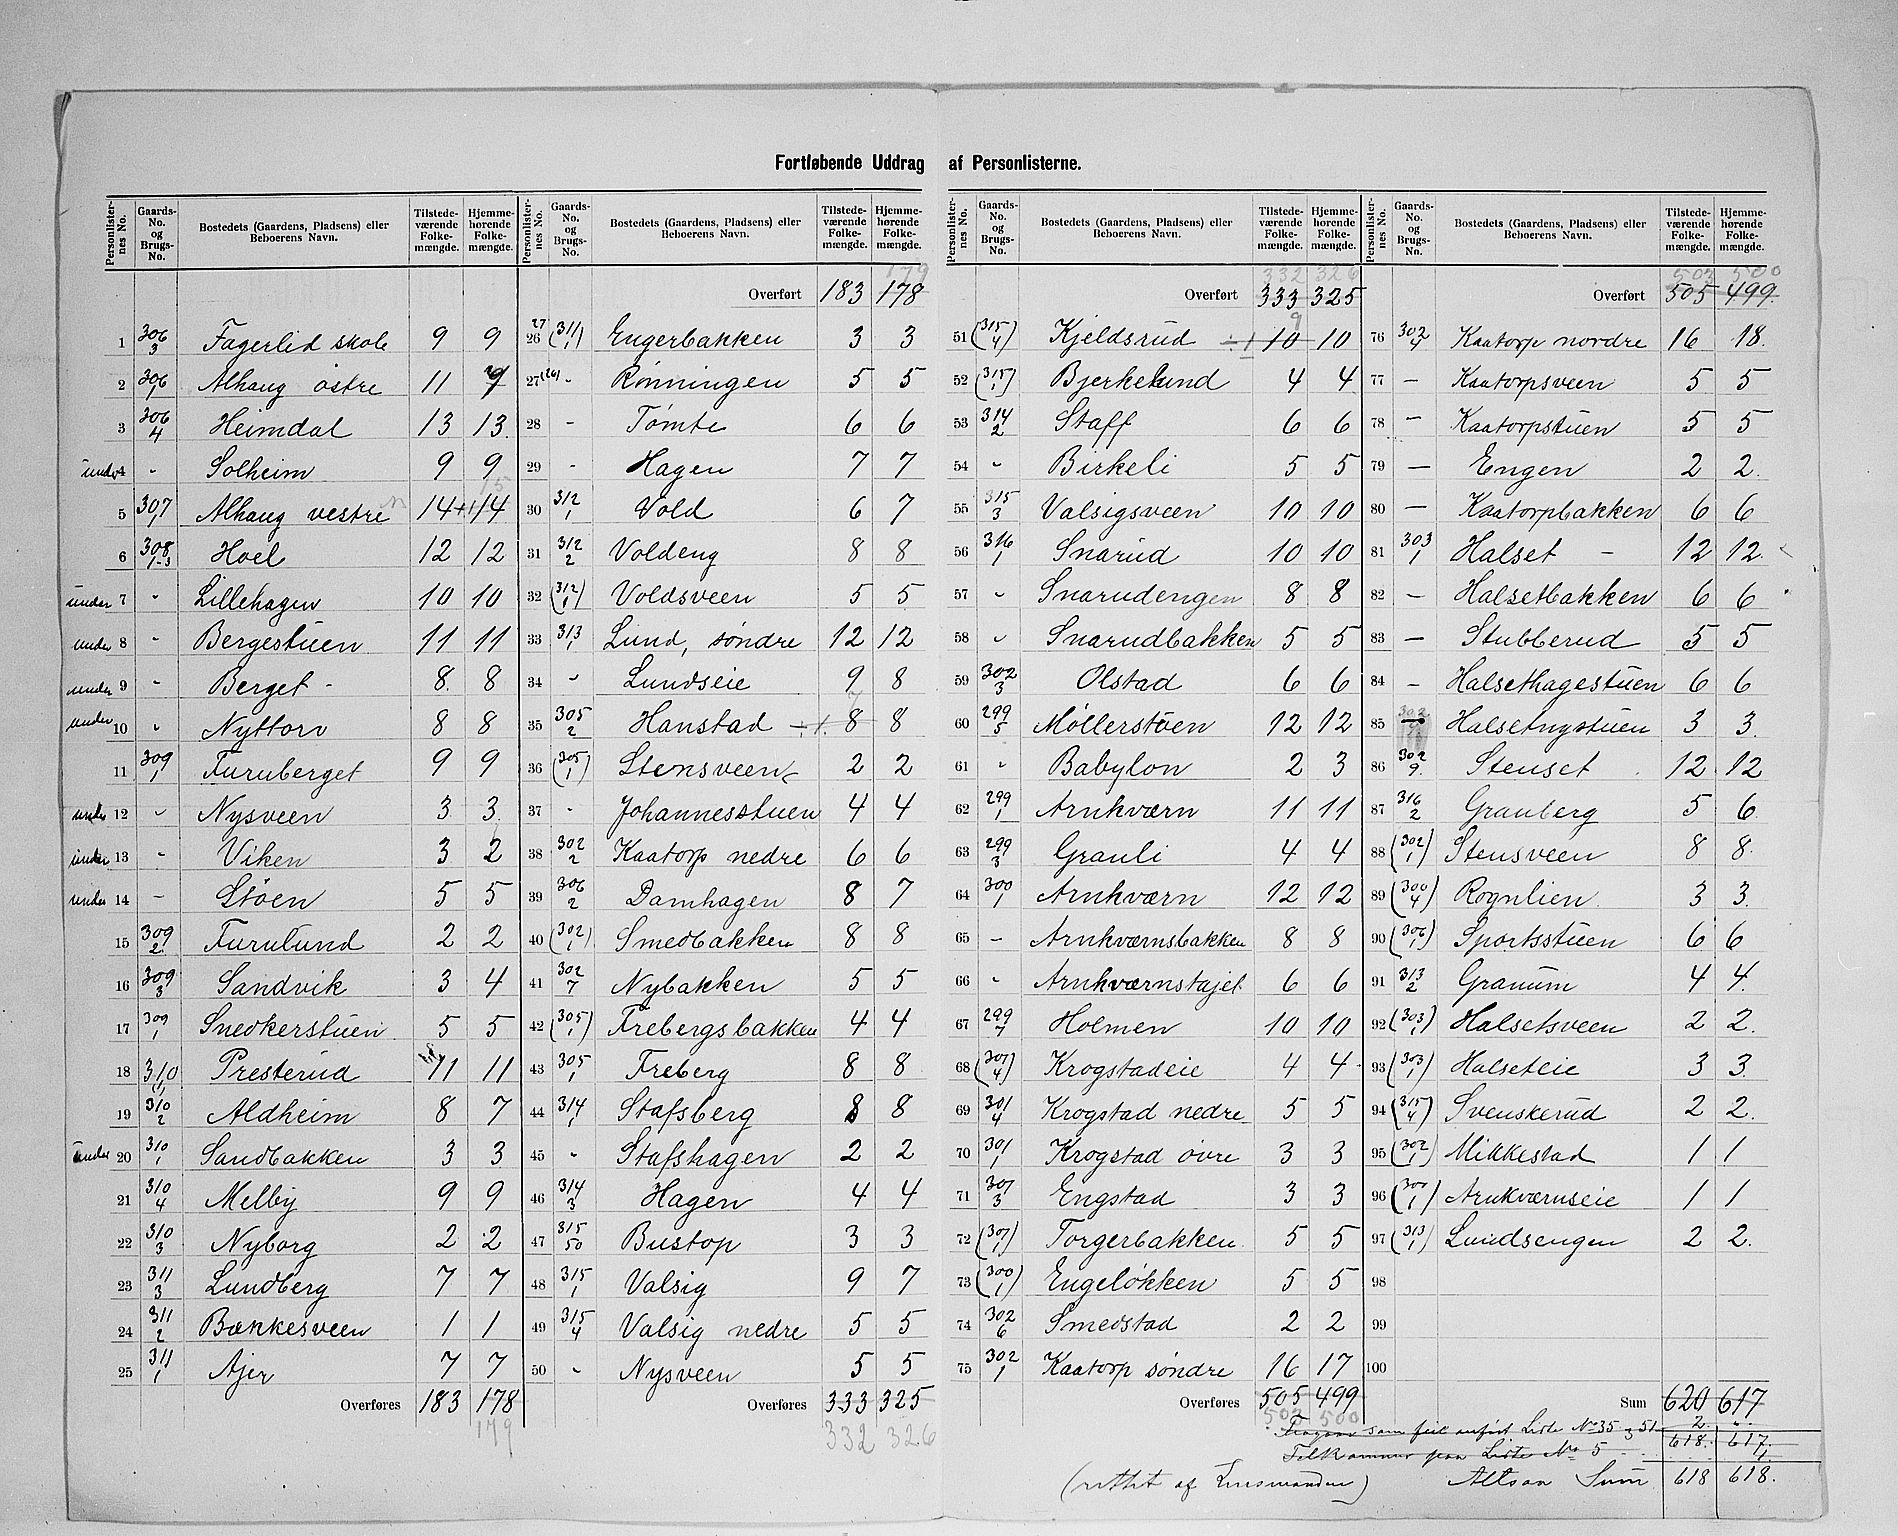 Fortløbende Uddrag af Personlisterne.
Personlisternes No. | Gaards-No. og Brugs-No. | Bostedets (Gaardens, Pladsens) eller Beboerens Navn. | Tilstedeværende Folkemængde. | Hjemmehørende Folkemængde.
1 306/3 Fagerlid skole 9 9
2 306/1 Alhaug östre 11 9
3 306/4 Heimdal 13 13
under 4 " Solheim 9 9
5 307/1 Alhaug vestre 14 +1 14 15
6 308/1-3 Hoel 12 12
under 7 " Lillehagen 10 10
under 8 " Bergestuen 11 11
under 9 " Berget 8 8
under 10 " Nyttorv 8 8
11 309/1 Furuberget 9 9
under 12 " Nysveen 3 3
under 13 " Viken 3 2
under 14 – Stöen 5 5
15 309/2 Furulund 2 2
16 309/3 Sandvik 3 4
17 309/1 Snedkerstuen 5 5
18 310/1 Presterud 11 11
19 310/2 Aldheim 8 7
under 20 310/1 Sandbakken 3 3
21 310/4 Melby 9 9
22 310/3 Nyborg 2 2
23 311/3 Lundberg 7 7
24 311/2 Bækkesveen 1 1
25 311/1 Ajer 7 7
Overføres 183 178
179
Personlisternes No. | Gaards-No. og Brugs-No. | Bostedets (Gaardens, Pladsens) eller Beboerens Navn. | Tilstedeværende Folkemængde. | Hjemmehørende Folkemængde.
179
Overført 183 178
27 26 (311/1) Engerbakken 3 3
27 (26) " Rönningen 5 5
28 " Tömte 6 6
29 " Hagen 7 7
30 312/1 Vold 6 7
31 312/2 Voldeng 8 8
32 (312/1) Voldsveen 5 5
33 313/1 Lund, söndre 12 12
34 " Lundseie 9 8
35 305/2 Hanstad ÷1. 8 8
36 (305/1) Stensveen 2 2
37 " Johannesstuen 4 4
38 302/2 Kaatorp nedre 6 6
39 306/2 Damhagen 8 7
40 (302/1) Smedbakken 8 8
41 302/7 Nybakken 5 5
42 (305/1) Frebergsbakken 4 4
43 305/1 Freberg 8 8
44 314/1 Stafsberg 8 8
45 " Stafshagen 2 2
46 314/3 Hagen 4 4
47 315/50 Bustop 3 3
48 315/1 Valsig 9 7
49 315/4 Valsig nedre 5 5
50 " Nysveen 5 5
Overføres 333 325
332 326
Personlisternes No. | Gaards-No. og Brugs-No. | Bostedets (Gaardens, Pladsens) eller Beboerens Navn. | Tilstedeværende Folkemængde. | Hjemmehørende Folkemængde.
332 326
Overført 333 325
51 (315/4) Kjeldsrud ÷1 9 10 10
52 (315/1) Bjerkelund 4 4
53 314/2 Staff 6 6
54 " Birkeli 5 5
55 315/3 Valsigsveen 10 10
56 316/1 Snarud 10 10
57 " Snarudengen 8 8
58 " Snarudbakken 5 5
59 302/3 Olstad 6 6
60 299/5 Möllerstöen 12 12
61 " Babylon 2 3
62 299/1 Arnkværn 11 11
63 299/3 Granli 4 4
64 300/1 Arnkværn 12 12
65 – Arnkværnsbakken 8 8
66 " Arnkværnstajet 6 6
67 299/7 Holmen 10 10
68 (301/4) Krogstadeie 4 4
69 301/4 Krogstad nedre 5 5
70 301/1 Krogstad övre 3 3
71 301/3 Engstad 3 3
72 (301/1) Torgerbakken 5 5
73 (300/1) Engelökken 5 5
74 302/6 Smedstad 2 2
75 302/1 Kaatorp söndre 16 17
Overføres 505 499
503 500
Personlisternes No. | Gaards-No. og Brugs-No. | Bostedets (Gaardens, Pladsens) eller Beboerens Navn. | Tilstedeværende Folkemængde. | Hjemmehørende Folkemængde.
503 500
Overført 505 499.
76 302/4 Kaatorp nordre 16 18.
77 – Kaatorpsveen 5 5
78 – Kaatorpstuen 5 5
79 – Engen 2 2.
80 – Kaatorpbakken 6 6
81 303/1 Halset – 12 12.
82 – Halsetbakken 6 6
83 – Stubberud 5 5
84 – Halsethagestuen 6 6
85 – Halsetnystuen 3 3.
86 302/9. Stenset 12 12
87 316/2 Granberg 5 6
88 (302/1) Stensveen 8 8.
89 (300/4) Rognlien 3 3.
90 (306/1) Sportsstuen 6 6
91 313/2 Granum 4 4.
92 (303/1) Halsetsveen 2 2.
93 (303/1) Halseteie 3 3.
94 (315/4) Svenskerud 2 2.
95 (302/1) Mikkestad 1 1
96 (300/1) Arnkværnseie 1 1
97 (313/1) Lundsengen 2 2.
98
99
100
Sum 620 617
Fragaar som feil anført Liste No 35 & 51 2. "
618. 617.
Tilkommer paa Liste No 5 1
(rettet af Lensmanden) Altsaa Sum 618 618.